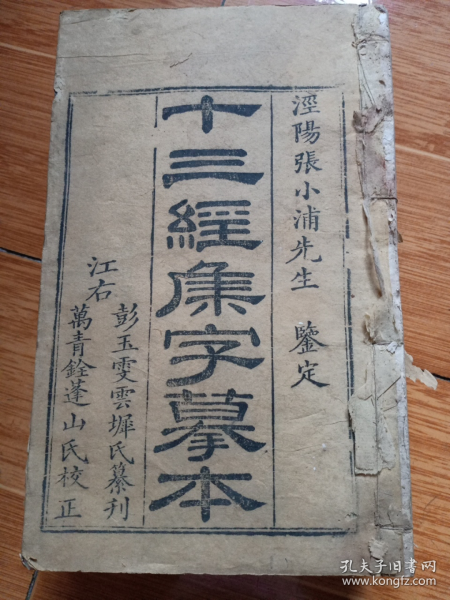 涇陽張小浦先生 鑒定
十三經集字摹本
江右
彭玉雯雲墀氏纂刊
萬青銓蓬山氏校正
孔夫子旧书网
www.kongfz.com